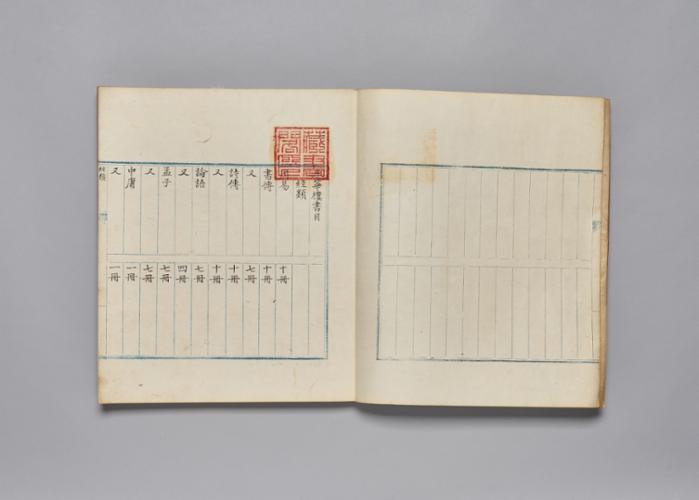 華樓書目
經類
易 十冊
書傳 十冊
又 七冊
詩傳 十冊
又 十冊
論語 七冊
又 四冊
孟子 七冊
又 七冊
中庸 一冊
又 一冊
經類